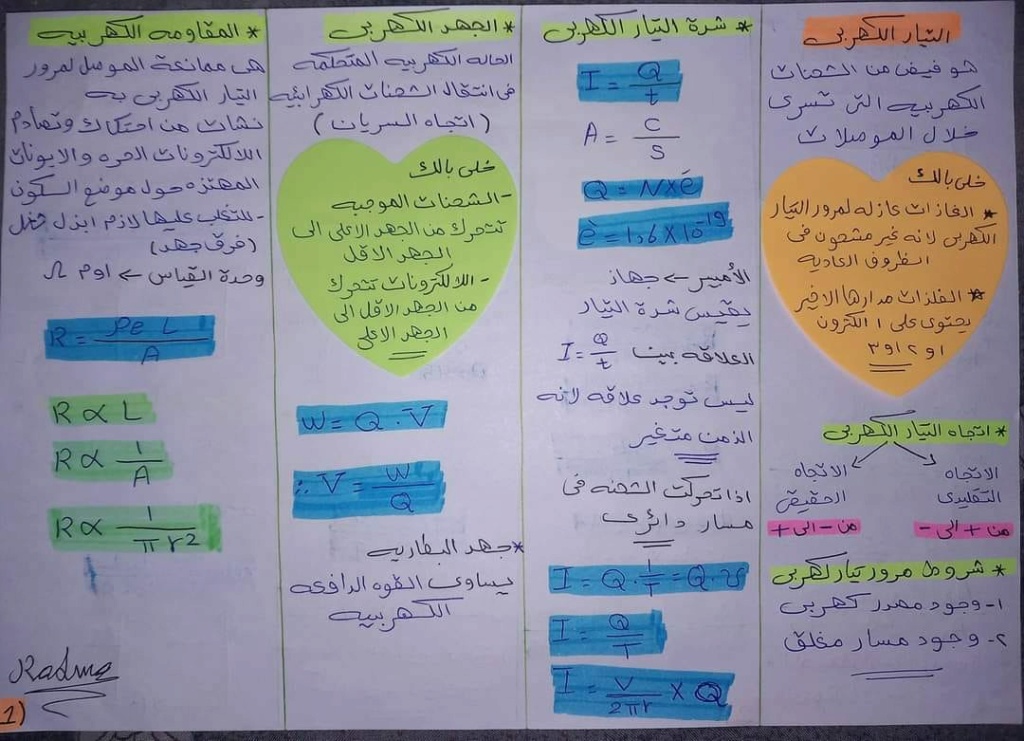 التيار الكهربى
هو فيض من الشحنات
الكهربيه التى تسرى
خلال الموصلات
خلى بالك
* الغازات عازله لمرور التيار
الكهربى لانه غير مشحون فى
الظروف العاديه
* الفلزات مدارها الاخير
يحتوى على ١ الكترون
او ٢ او ٣
* اتجاه التيار الكهربى
الاتجاه
التقليدى
من + الى -
الاتجاه
الحقيقى
من - الى +
* شروط مرور تيار كهربى
١- وجود مصدر كهربى
٢- وجود مسار مغلق
* شدة التيار الكهربى
I = Q/t
A = C/S
Q = N×é
é = 1.6 × 10⁻¹⁹
الأميتر ← جهاز
يقيس شدة التيار
العلاقه بين I = Q/t
ليس توجد علاقه لانه
الزمن متغير
اذا تحركت الشحنه فى
مسار دائرى
I = Q · 1/T = Q · ν
I = Q/T
I = V/2πr × Q
* الجهد الكهربى
الحاله الكهربيه المتحكمه
فى انتقال الشحنات الكهرابئيه
( اتجاه السريان )
خلى بالك
- الشحنات الموجبه
تتحرك من الجهد الاعلى الى
الجهد الاقل
- اللالكترونات تتحرك
من الجهد الاقل الى
الجهد الاعلى
W = Q · V
∴ V = W/Q
* جهد البطاريه
يساوى القوه الدافعه
الكهربيه
* المقاومه الكهربيه
هى ممانعة الموصل لمرور
التيار الكهربى به
نشات من احتكاك وتصادم
اللالكترونات الحره والايونات
المهتزه حول موضع السكون
- للتغلب عليها لازم ابذل شغل
(فرق جهد)
وحدة القياس ← اوم Ω
R = ρe L / A
R ∝ L
R ∝ 1/A
R ∝ 1/πr²
1)